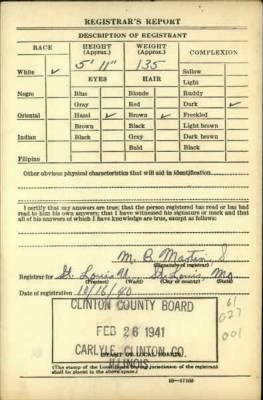 REGISTRAR'S REPORT
DESCRIPTION OF REGISTRANT
RACE HEIGHT (Approx.) WEIGHT (Approx.) COMPLEXION
5' 11" 135
White ✓ Sallow
EYES HAIR Light
Negro Blue Blonde Ruddy
Gray Red Dark ✓
Oriental Hazel ✓ Brown ✓ Freckled
Brown Black Light brown
Indian Black Gray Dark brown
Bald Black
Filipino
Other obvious physical characteristics that will aid in identification
I certify that my answers are true; that the person registered has read or has had
read to him his own answers; that I have witnessed his signature or mark and that
all of his answers of which I have knowledge are true, except as follows:
M. B.
(Signature of registrar)
Registrar for St. Louis U. St. Louis, Mo
(Precinct) (Ward) (City or county) (State)
Date of registration 10/16/40
CLINTON COUNTY BOARD
FEB 26 1941
CARLYLE, CLINTON CO.
ILLINOIS
61
027
001
(STAMP OF LOCAL BOARD)
(The stamp of the Local Board having jurisdiction of the registrant
shall be placed in the above space.)